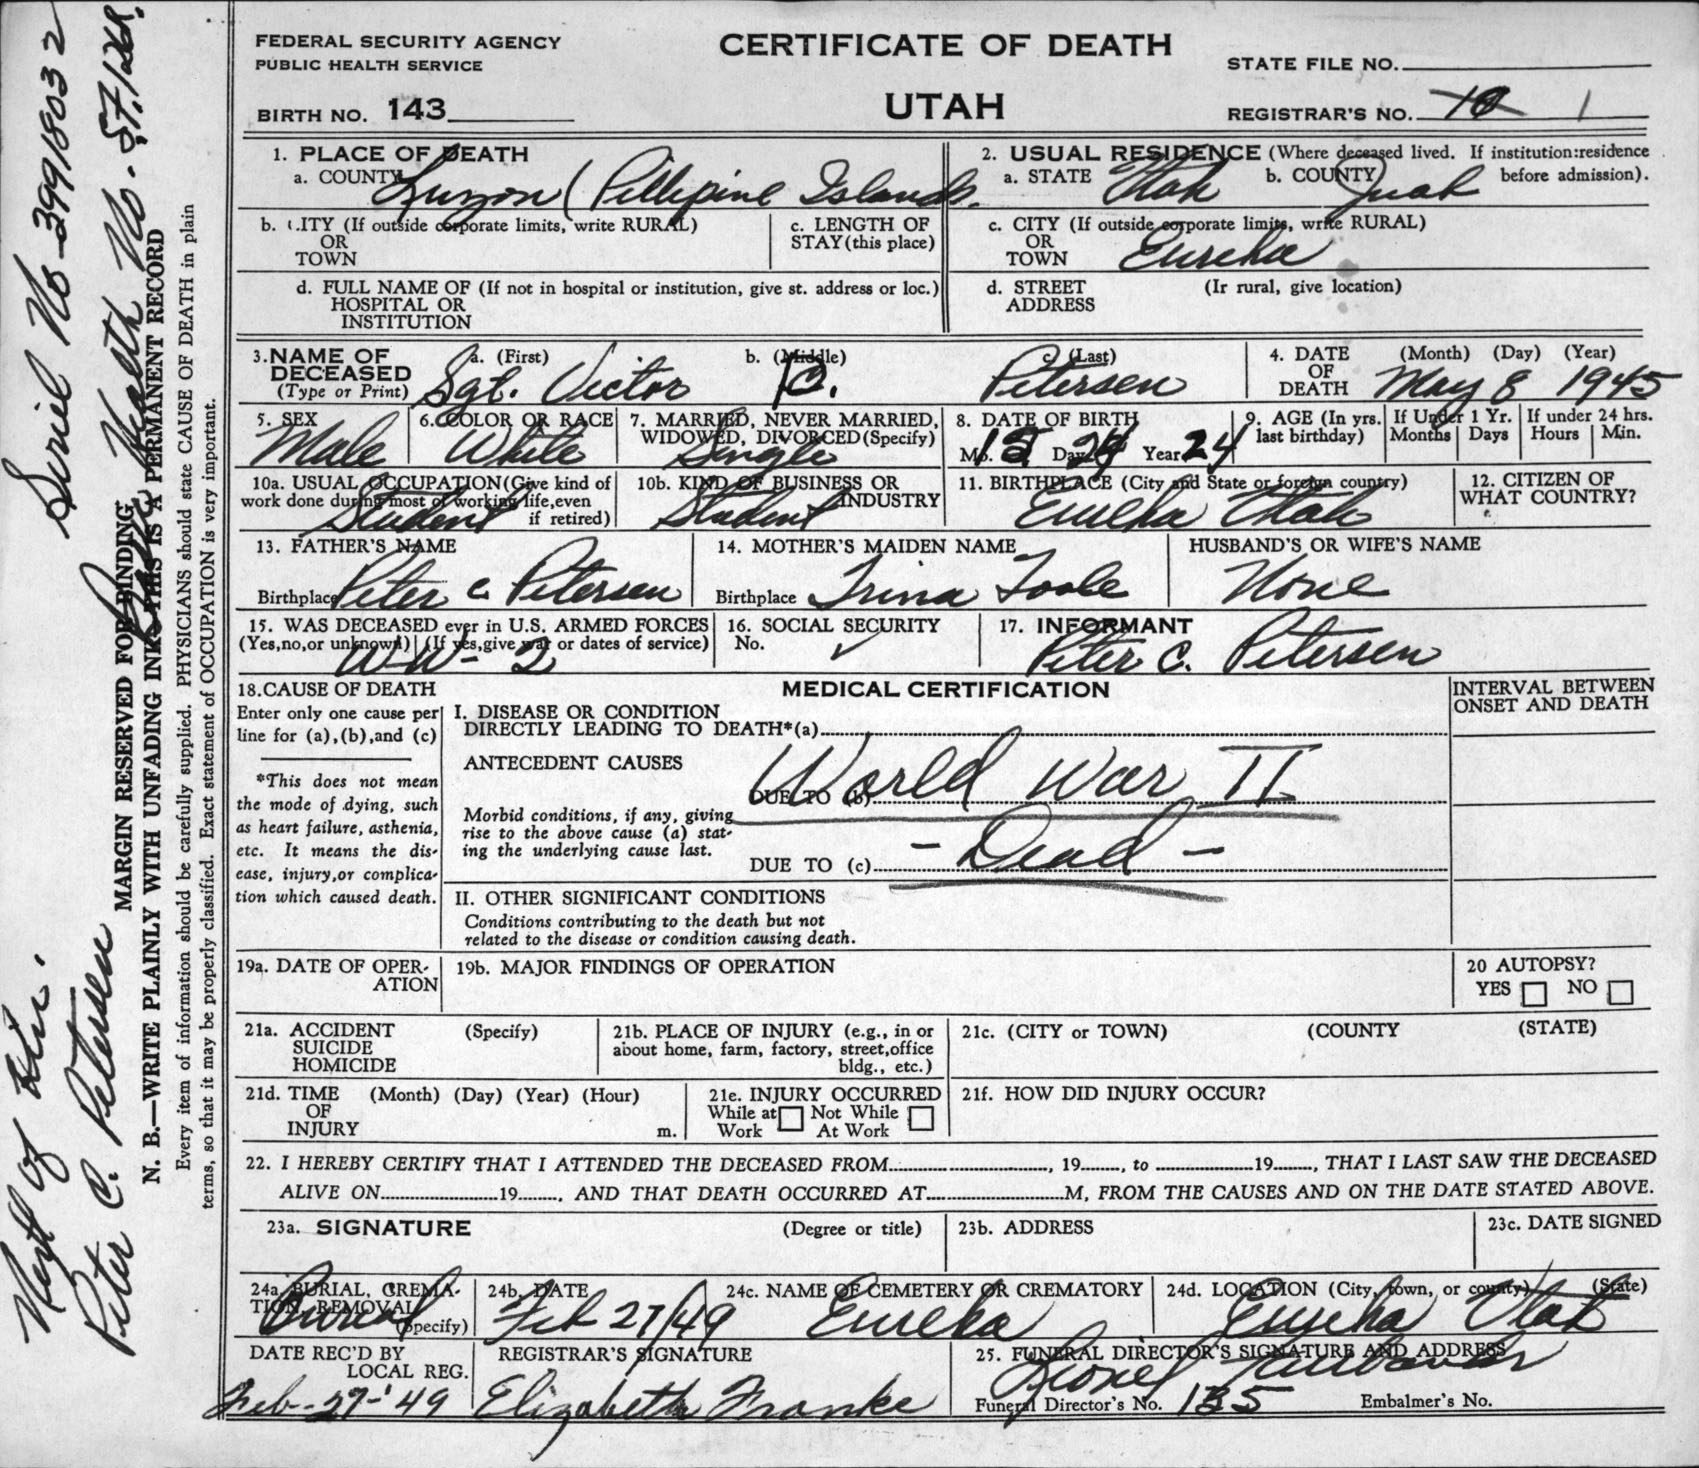 FEDERAL SECURITY AGENCY
PUBLIC HEALTH SERVICE
BIRTH NO. 143
CERTIFICATE OF DEATH
UTAH
STATE FILE NO.
REGISTRAR'S NO. 10 1
1. PLACE OF DEATH
a. COUNTY Luzon (Pillipine Islands.
2. USUAL RESIDENCE (Where deceased lived. If institution:residence
a. STATE Utah b. COUNTY Juab before admission).
b. CITY (If outside corporate limits, write RURAL)
OR
TOWN
c. LENGTH OF
STAY(this place)
c. CITY (If outside corporate limits, write RURAL)
OR
TOWN Eureka
d. FULL NAME OF (If not in hospital or institution, give st. address or loc.)
HOSPITAL OR
INSTITUTION
d. STREET (Ir rural, give location)
ADDRESS
3. NAME OF a. (First) b. (Middle) c. (Last)
DECEASED
(Type or Print) Sgt. Victor C. Petersen
4. DATE (Month) (Day) (Year)
OF
DEATH May 8 1945
5. SEX
Male
6. COLOR OR RACE
White
7. MARRIED, NEVER MARRIED,
WIDOWED, DIVORCED(Specify)
Single
8. DATE OF BIRTH
Mo. Day Year 24
9. AGE (In yrs.
last birthday)
If Under 1 Yr.
Months Days
If under 24 hrs.
Hours Min.
10a. USUAL OCCUPATION(Give kind of
work done during most of working life,even
if retired)
Student
10b. KIND OF BUSINESS OR
INDUSTRY
Student
11. BIRTHPLACE (City and State or foreign country)
Eureka Utah
12. CITIZEN OF
WHAT COUNTRY?
13. FATHER'S NAME
Birthplace Peter C Petersen
14. MOTHER'S MAIDEN NAME
Birthplace Trina Toole
HUSBAND'S OR WIFE'S NAME
None
15. WAS DECEASED ever in U.S. ARMED FORCES
(Yes,no,or unknown) (If yes,give war or dates of service)
WW-2
16. SOCIAL SECURITY
No.
17. INFORMANT
Peter C. Petersen
18.CAUSE OF DEATH
Enter only one cause per
line for (a),(b),and (c)
*This does not mean
the mode of dying, such
as heart failure, asthenia,
etc. It means the dis-
ease, injury,or complica-
tion which caused death.
MEDICAL CERTIFICATION
I. DISEASE OR CONDITION
DIRECTLY LEADING TO DEATH*(a)
ANTECEDENT CAUSES
DUE TO (b) World War II
Morbid conditions, if any, giving
rise to the above cause (a) stat-
ing the underlying cause last.
DUE TO (c) - Dead -
II. OTHER SIGNIFICANT CONDITIONS
Conditions contributing to the death but not
related to the disease or condition causing death.
INTERVAL BETWEEN
ONSET AND DEATH
19a. DATE OF OPER-
ATION
19b. MAJOR FINDINGS OF OPERATION
20 AUTOPSY?
YES NO
21a. ACCIDENT (Specify)
SUICIDE
HOMICIDE
21b. PLACE OF INJURY (e.g., in or
about home, farm, factory, street,office
bldg., etc.)
21c. (CITY or TOWN) (COUNTY (STATE)
21d. TIME (Month) (Day) (Year) (Hour)
OF
INJURY m.
21e. INJURY OCCURRED
While at Not While
Work At Work
21f. HOW DID INJURY OCCUR?
22. I HEREBY CERTIFY THAT I ATTENDED THE DECEASED FROM, 19, to 19, THAT I LAST SAW THE DECEASED
ALIVE ON 19, AND THAT DEATH OCCURRED AT M, FROM THE CAUSES AND ON THE DATE STATED ABOVE.
23a. SIGNATURE (Degree or title)
23b. ADDRESS
23c. DATE SIGNED
24a. BURIAL, CREMA-
TION, REMOVAL
(Specify)
Burial
24b. DATE
Feb 27/49
24c. NAME OF CEMETERY OR CREMATORY
Eureka
24d. LOCATION (City, town, or county) (State)
Eureka Utah
DATE REC'D BY
LOCAL REG.
Feb-27-'49
REGISTRAR'S SIGNATURE
Elizabeth Franke
25. FUNERAL DIRECTOR'S SIGNATURE AND ADDRESS
Lionel
Funeral Director's No. 135 Embalmer's No.
Next of kin. Serial No-39918032
Peter C. Petersen
MARGIN RESERVED FOR BINDING
N. B.—WRITE PLAINLY WITH UNFADING INK—THIS IS A PERMANENT RECORD
Every item of information should be carefully supplied. PHYSICIANS should state CAUSE OF DEATH in plain
terms, so that it may be properly classified. Exact statement of OCCUPATION is very important.